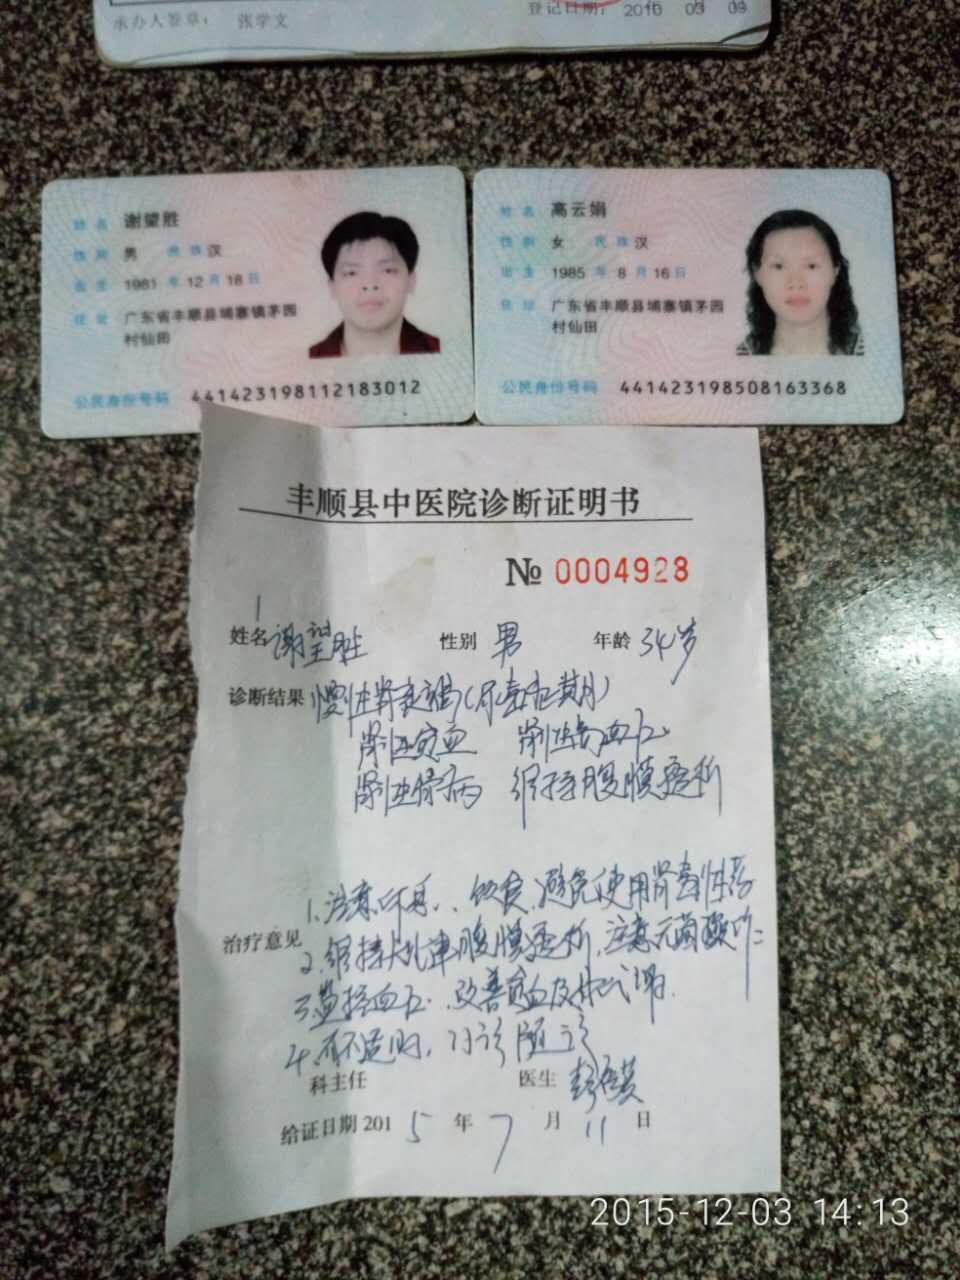 承办人签章： 张学文
登记日期： 2010 03 09
姓名 谢望胜
性别 男 民族 汉
出生 1981 年 12 月 18 日
住址 广东省丰顺县埔寨镇茅园
村仙田
公民身份号码 441423198112183012
姓名 高云娟
性别 女 民族 汉
出生 1985 年 8 月 16 日
住址 广东省丰顺县埔寨镇茅园
村仙田
公民身份号码 441423198508163368
丰顺县中医院诊断证明书
№ 0004928
姓名 谢望胜 性别 男 年龄 34岁
诊断结果 慢性肾衰竭(尿毒症期)
肾性贫血 肾性高血压
肾性骨病 维持腹膜透析
治疗意见 1、注意休息、饮食、避免使用肾毒性药
2、维持 腹膜透析,注意无菌操作
3、监控血压、改善贫血及
4、有不适时,门诊随诊
科主任 医生
给证日期 2015 年 7 月 11 日
2015-12-03 14:13